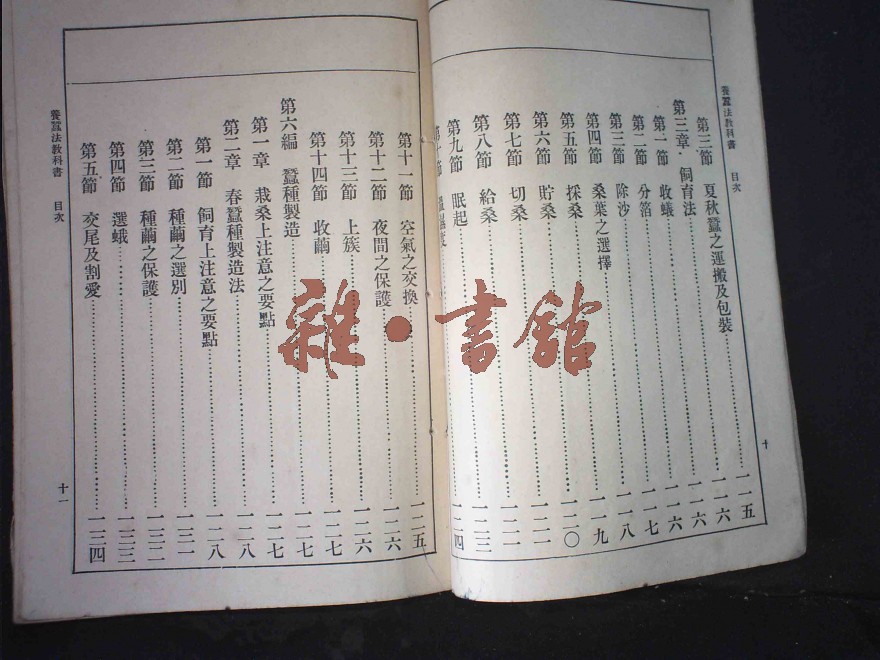 養蠶法教科書 目次
十
第三節 夏秋蠶之運搬及包裝 一一五
第三章 飼育法 一一六
第一節 收蟻 一一六
第二節 分箔 一一七
第三節 除沙 一一八
第四節 桑葉之選擇 一一九
第五節 採桑 一二〇
第六節 貯桑 一二一
第七節 切桑 一二二
第八節 給桑 一二三
第九節 眠起 一二四
第十一節 空氣之交換 一二五
第十二節 夜間之保護 一二六
第十三節 上簇 一二六
第十四節 收繭 一二七
第六編 蠶種製造 一二七
第一章 栽桑上注意之要點 一二七
第二章 春蠶種製造法 一二八
第一節 飼育上注意之要點 一二八
第二節 種繭之選別 一三一
第三節 種繭之保護 一三二
第四節 選蛾 一三三
第五節 交尾及割愛 一三四
養蠶法教科書 目次
十一
雜·書館